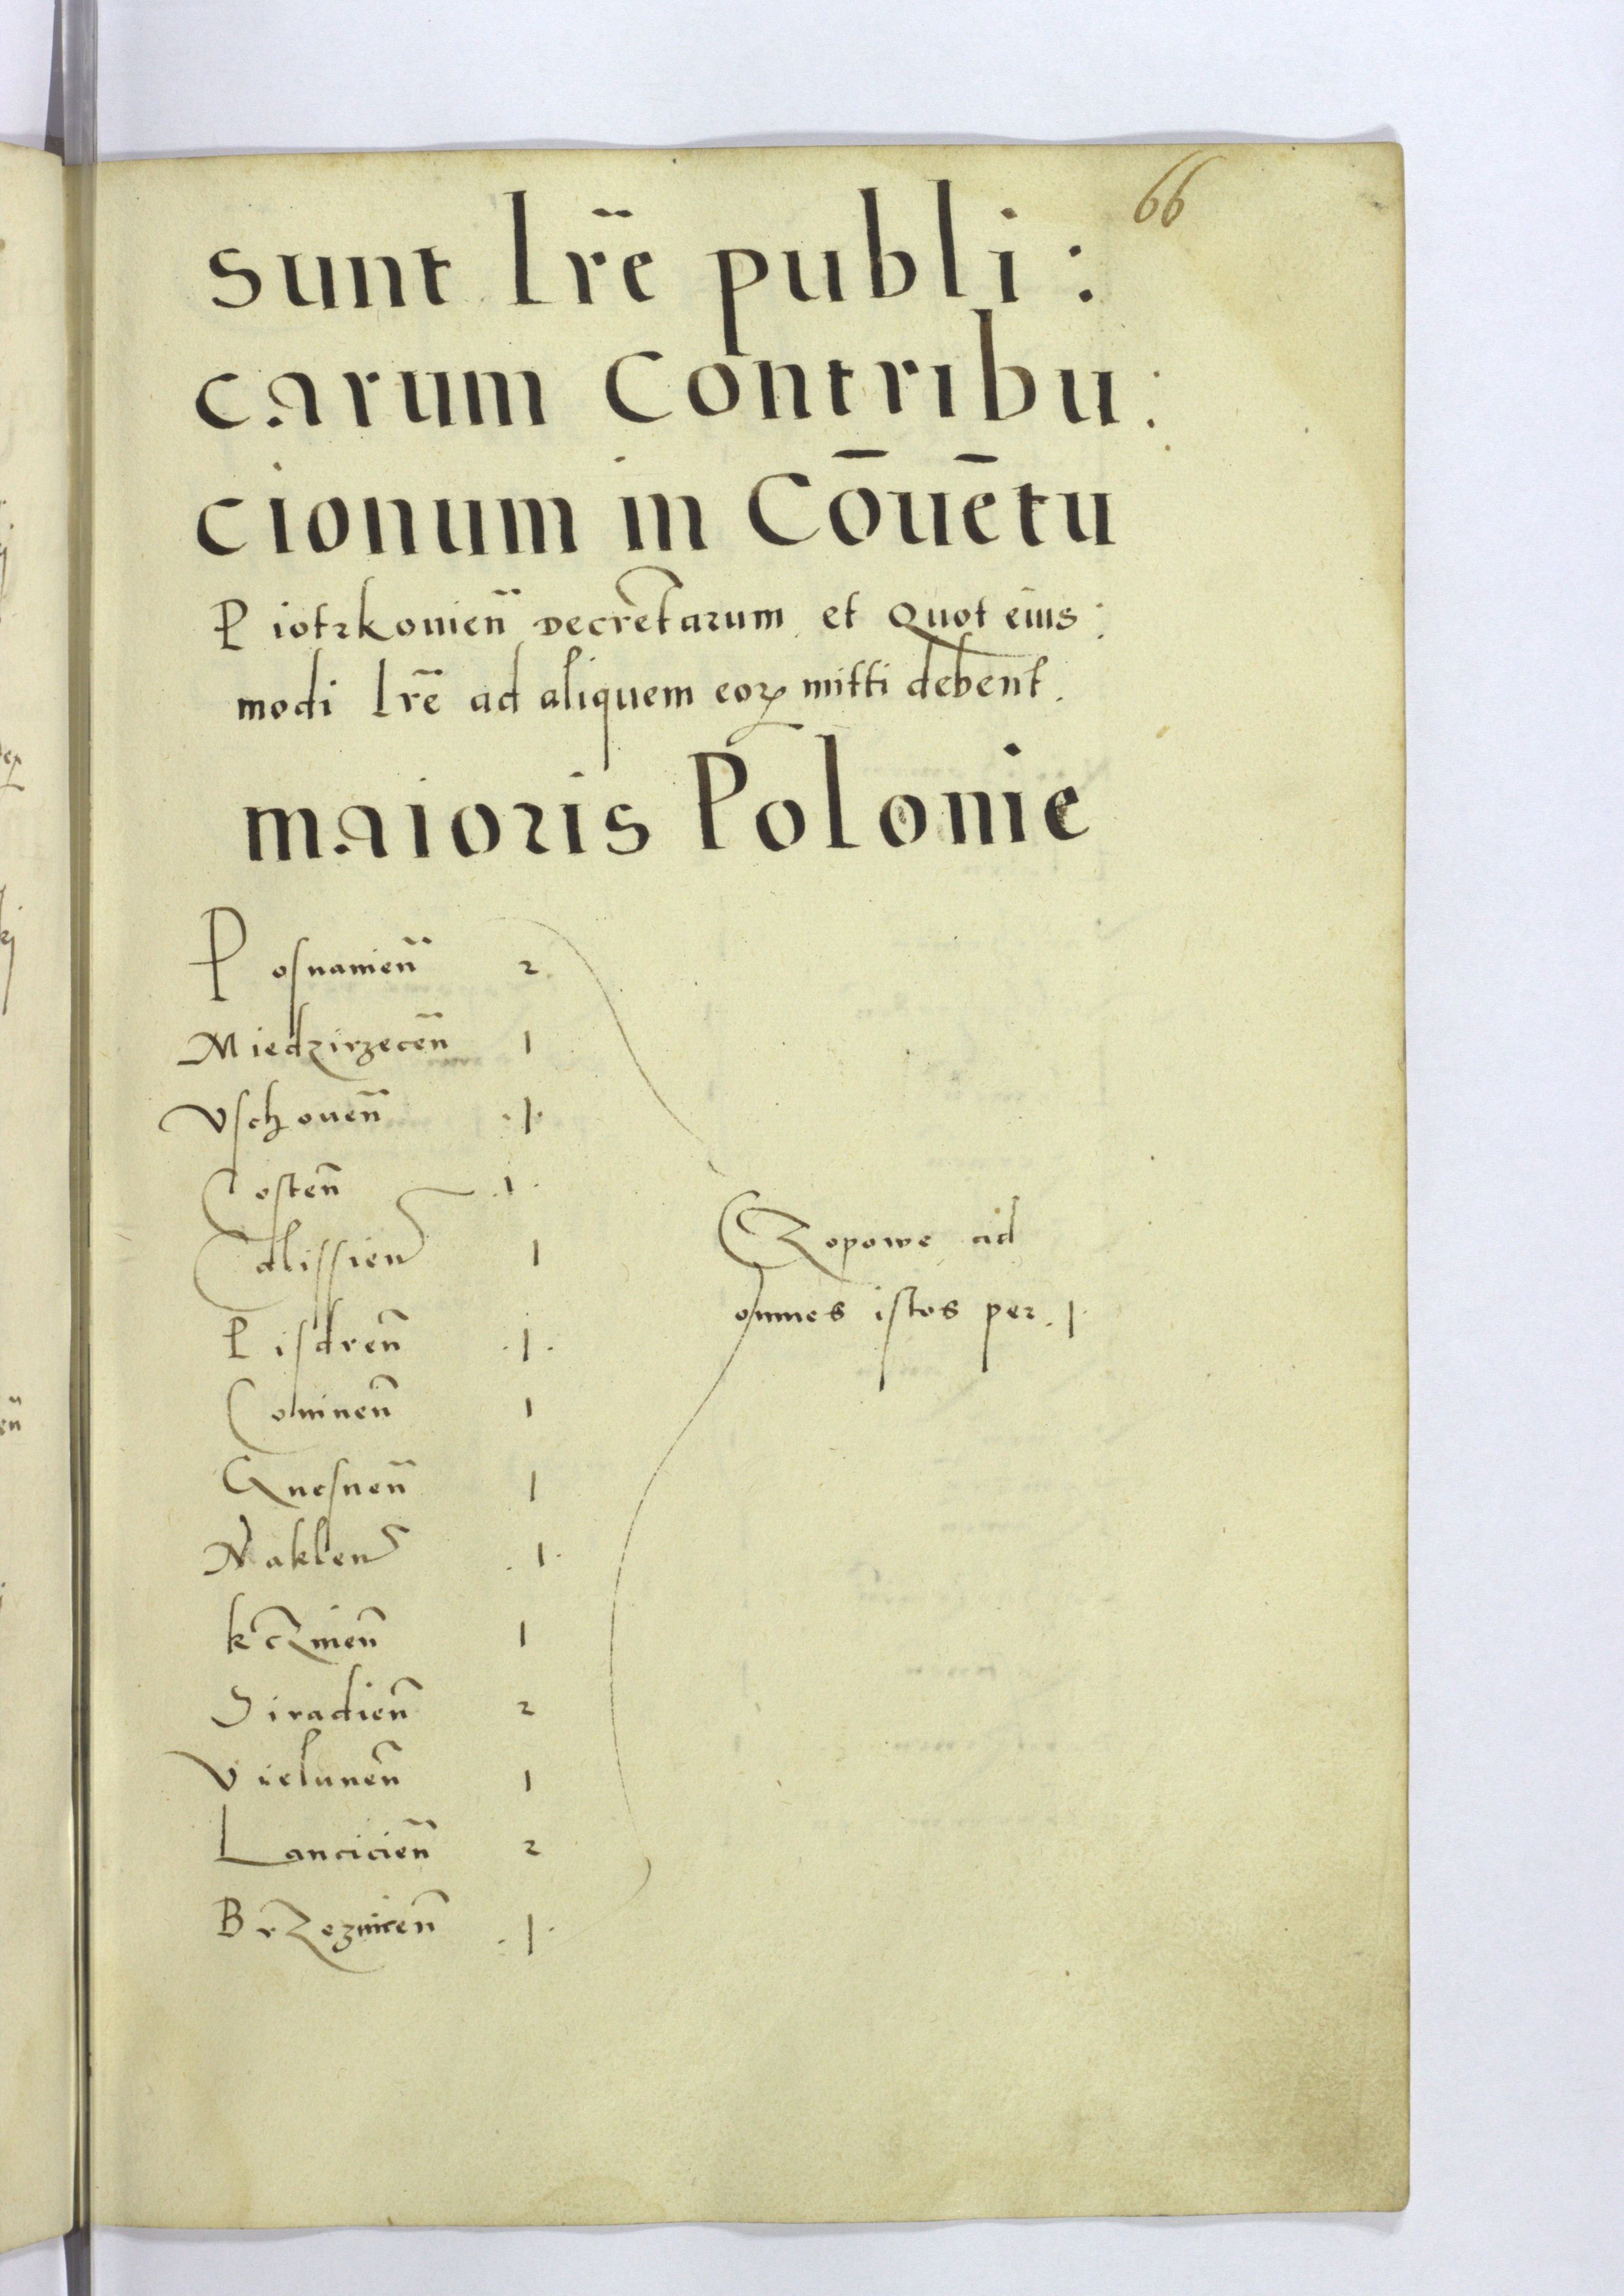 66
sunt lr̄e publi:
carum Contribu:
cionum in Cōuētu
Piotrkouien̄ decretarum et quot eius:
modi lr̄e ad aliquem eoꝝ mitti debent.
maioris Polonie
Posnanien̄ 2
Miedzirzecen̄ 1
Vschouen̄ .1.
Costen̄ .1.
Calissien̄ 1
Pisdren̄ .1.
Coninen̄ 1
Gnesnen̄ 1
Naklen̄ .1.
kczinen̄ 1
Siradien̄ 2
Vielunen̄ 1
Lancicien̄ 2
Brzeznicen̄ .1.
Czopowe ad
omnes istos per .1.